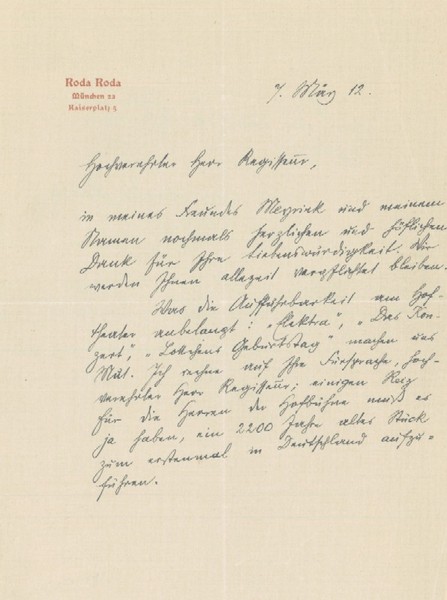 Roda Roda
München 23
Kaiserplatz 5
7. März 12.
Hochverehrter Herr Regisseur,
in meines Freundes Meyrink und meinem
Namen nochmals herzlichen und höflichen
Dank für Ihre Liebenswürdigkeit. Wir
werden Ihnen allezeit verpflichtet bleiben.
Was die Aufführbarkeit am Hof-
theater anbelangt: „Elektra", „Das Kon-
zert", „Lottchens Geburtstag" machen uns
Mut. Ich rechne auf Ihre Fürsprache, hoch-
verehrter Herr Regisseur; einigen Reiz
für die Herren der Hofbühne muß es
ja haben, ein 2200 Jahre altes Stück
zum erstenmal in Deutschland aufzu-
führen.